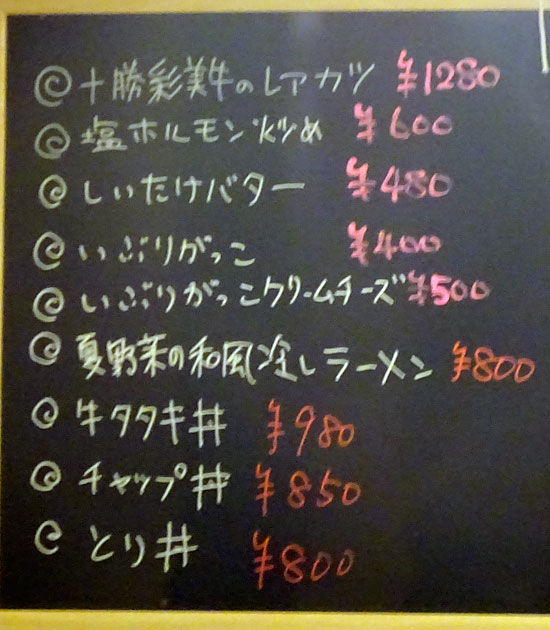 十勝彩美牛のレアカツ ¥1280
塩ホルモン炒め ¥600
しいたけバター ¥480
いぶりがっこ ¥400
いぶりがっこクリームチーズ ¥500
夏野菜の和風冷しラーメン ¥800
牛タタキ丼 ¥980
チャップ丼 ¥850
とり丼 ¥800